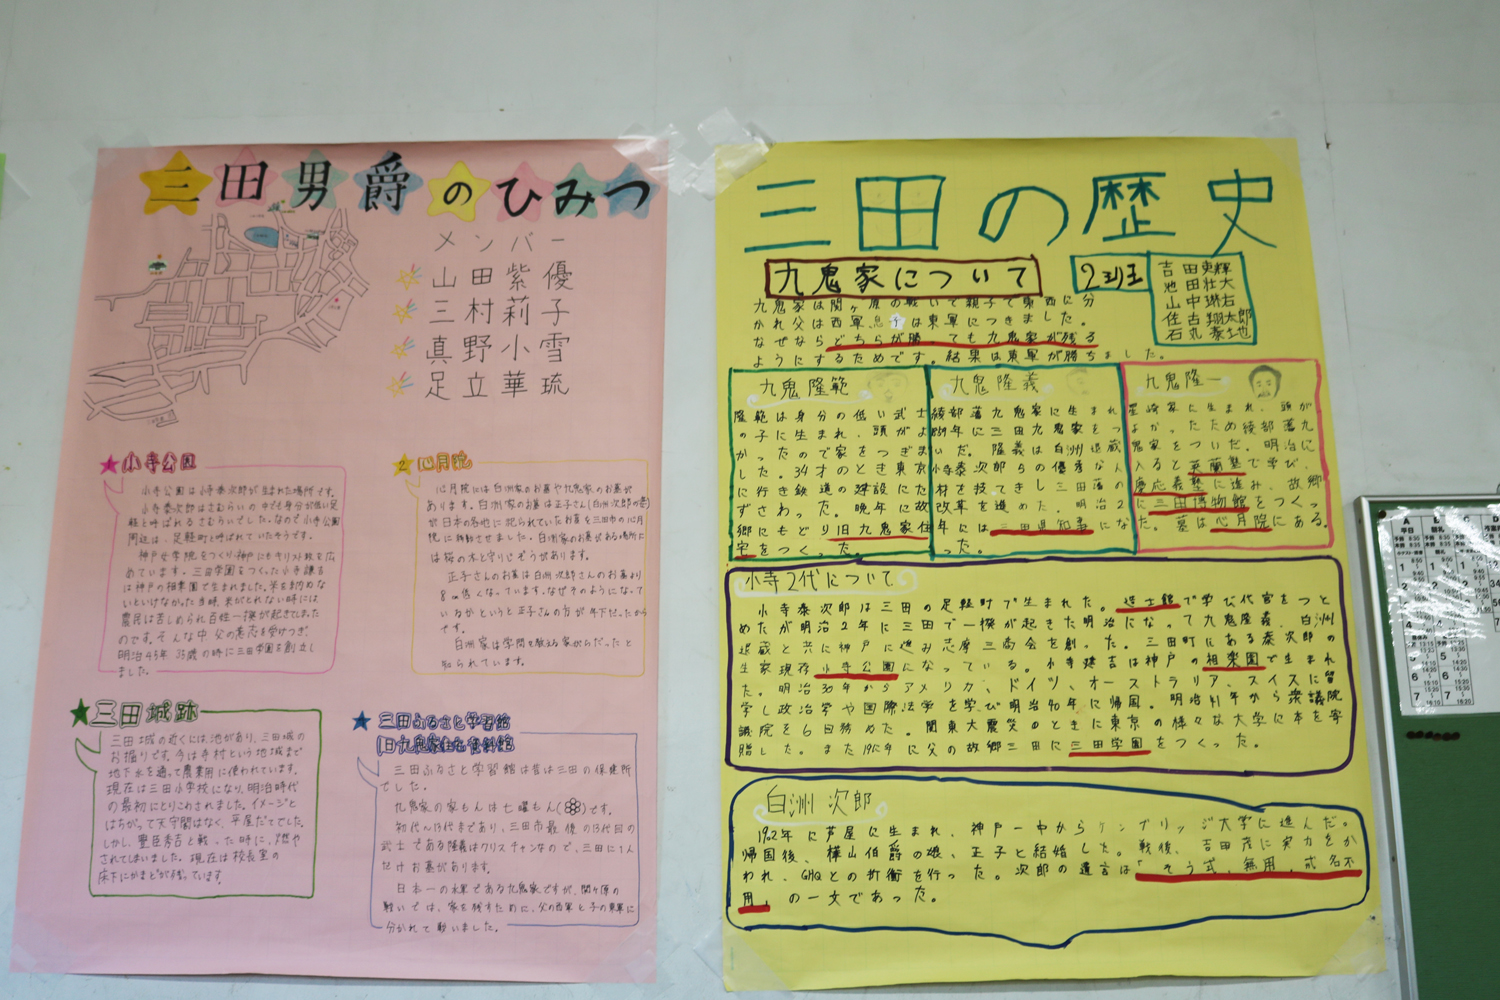 三田男爵のひみつ
メンバー
山田紫優
三村莉子
真野小雪
足立華琉
小寺公園
小寺公園は小寺泰次郎が生まれた場所です。
小寺泰次郎はさむらいの中でも身分が低い足
軽と呼ばれるさむらいでした。なので小寺公園
周辺は、足軽町と呼ばれていたそうです。
神戸女学院をつくり神戸にキリスト教を広
めています。三田学園をつくった小寺謙吉
は神戸の相楽園で生まれました。米を納めな
いといけなかった当時、米がとれない時には
農民は苦しめられ百姓一揆が起きてしまった
のです。そんな中、父の意志を受けつぎ、
明治45年 35歳の時に三田学園を創立し
ました。
2 心月院
心月院には白洲家のお墓や九鬼家のお墓が
あります。白洲家のお墓は正子さん(白洲次郎の妻)
が日本の各地に祀られていたお墓を三田市の心月
院に移動させました。白洲家のお墓がある場所に
は桜の木と守りじぞうがあります。
正子さんのお墓は白洲次郎さんのお墓より
8cm低くなっています。なぜそのようになって
いるかというと正子さんの方が年下だったから
です。
白洲家は学問を教える家がらだったと
知られています。
三田城跡
三田城の近くには池があり、三田城の
お掘りです。今は寺村という地域まで
地下水を通って農業用に使われています。
現在は三田小学校になり、明治時代
の最初にとりこわされました。イメージと
はちがって天守閣はなく、平屋だてでした。
しかし、豊臣秀吉と戦った時に、燃や
されてしまいました。現在は校長室の
床下にかまどが残っています。
三田ふるさと学習館
旧九鬼家住宅資料館
三田ふるさと学習館は昔は三田の保健所
でした。
九鬼家の家もんは七曜もん( )です。
初代〜13代まであり、三田市最後の13代目の
武士である隆義はクリスチャンなので、三田に1人
だけお墓があります。
日本一の水軍である九鬼家ですが、関ヶ原の
戦いでは、家を残すために、父の西軍と子の東軍に
分かれて戦いました。
三田の歴史
九鬼家について
2班
池田壮大
九鬼家は関ヶ原の戦いで親子で東西に分
かれ父は西軍、息子は東軍につきました。
なぜならどちらが勝っても九鬼家が残る
ようにするためです。結果は東軍が勝ちました。
九鬼隆範
隆範は身分の低い武士
の子に生まれ、頭がよ
かったので家をつぎま
した。34才のとき東京
に行き鉄道の建設にた
ずさわった。晩年に故
郷にもどり旧九鬼家住
宅をつくった。
九鬼隆義
綾部藩九鬼家に生まれ
1859年に三田九鬼家をつ
いだ。隆義は白洲退蔵
小寺泰次郎らの優秀な人
材を投てきし三田藩の
改革を進めた。明治2
年には三田県知事にな
った。
九鬼隆一
星崎家に生まれ、頭が
よかったため綾部藩九
鬼家をついだ。明治に
入ると英蘭塾で学び、
慶応義塾に進み、故郷
に三田博物館をつくっ
た。墓は心月院にある。
小寺2代について
小寺泰次郎は三田の足軽町で生まれた。造士館で学び代官をつと
めたが明治2年に三田で一揆が起きた明治になって九鬼隆義、白洲
退蔵と共に神戸に進み志摩三商会を創った。三田町にある泰次郎の
生家現存小寺公園になっている。小寺謙吉は神戸の相楽園で生まれ
た。明治30年からアメリカ、ドイツ、オーストラリア、スイスに留
学し政治学や国際法学を学び明治40年に帰国。明治41年から衆議院
議院を6日務めた。関東大震災のときに東京の様々な大学に本を寄
贈した。また1912年に父の故郷三田に三田学園をつくった。
白洲次郎
1902年に芦屋に生まれ、神戸一中からケンブリッジ大学に進んだ。
帰国後、樺山伯爵の娘、正子と結婚した。戦後、吉田茂に実力をか
われ、GHQとの折衝を行った。次郎の遺言は「そう式、無用、戒名不
用」の一文であった。
A B C D